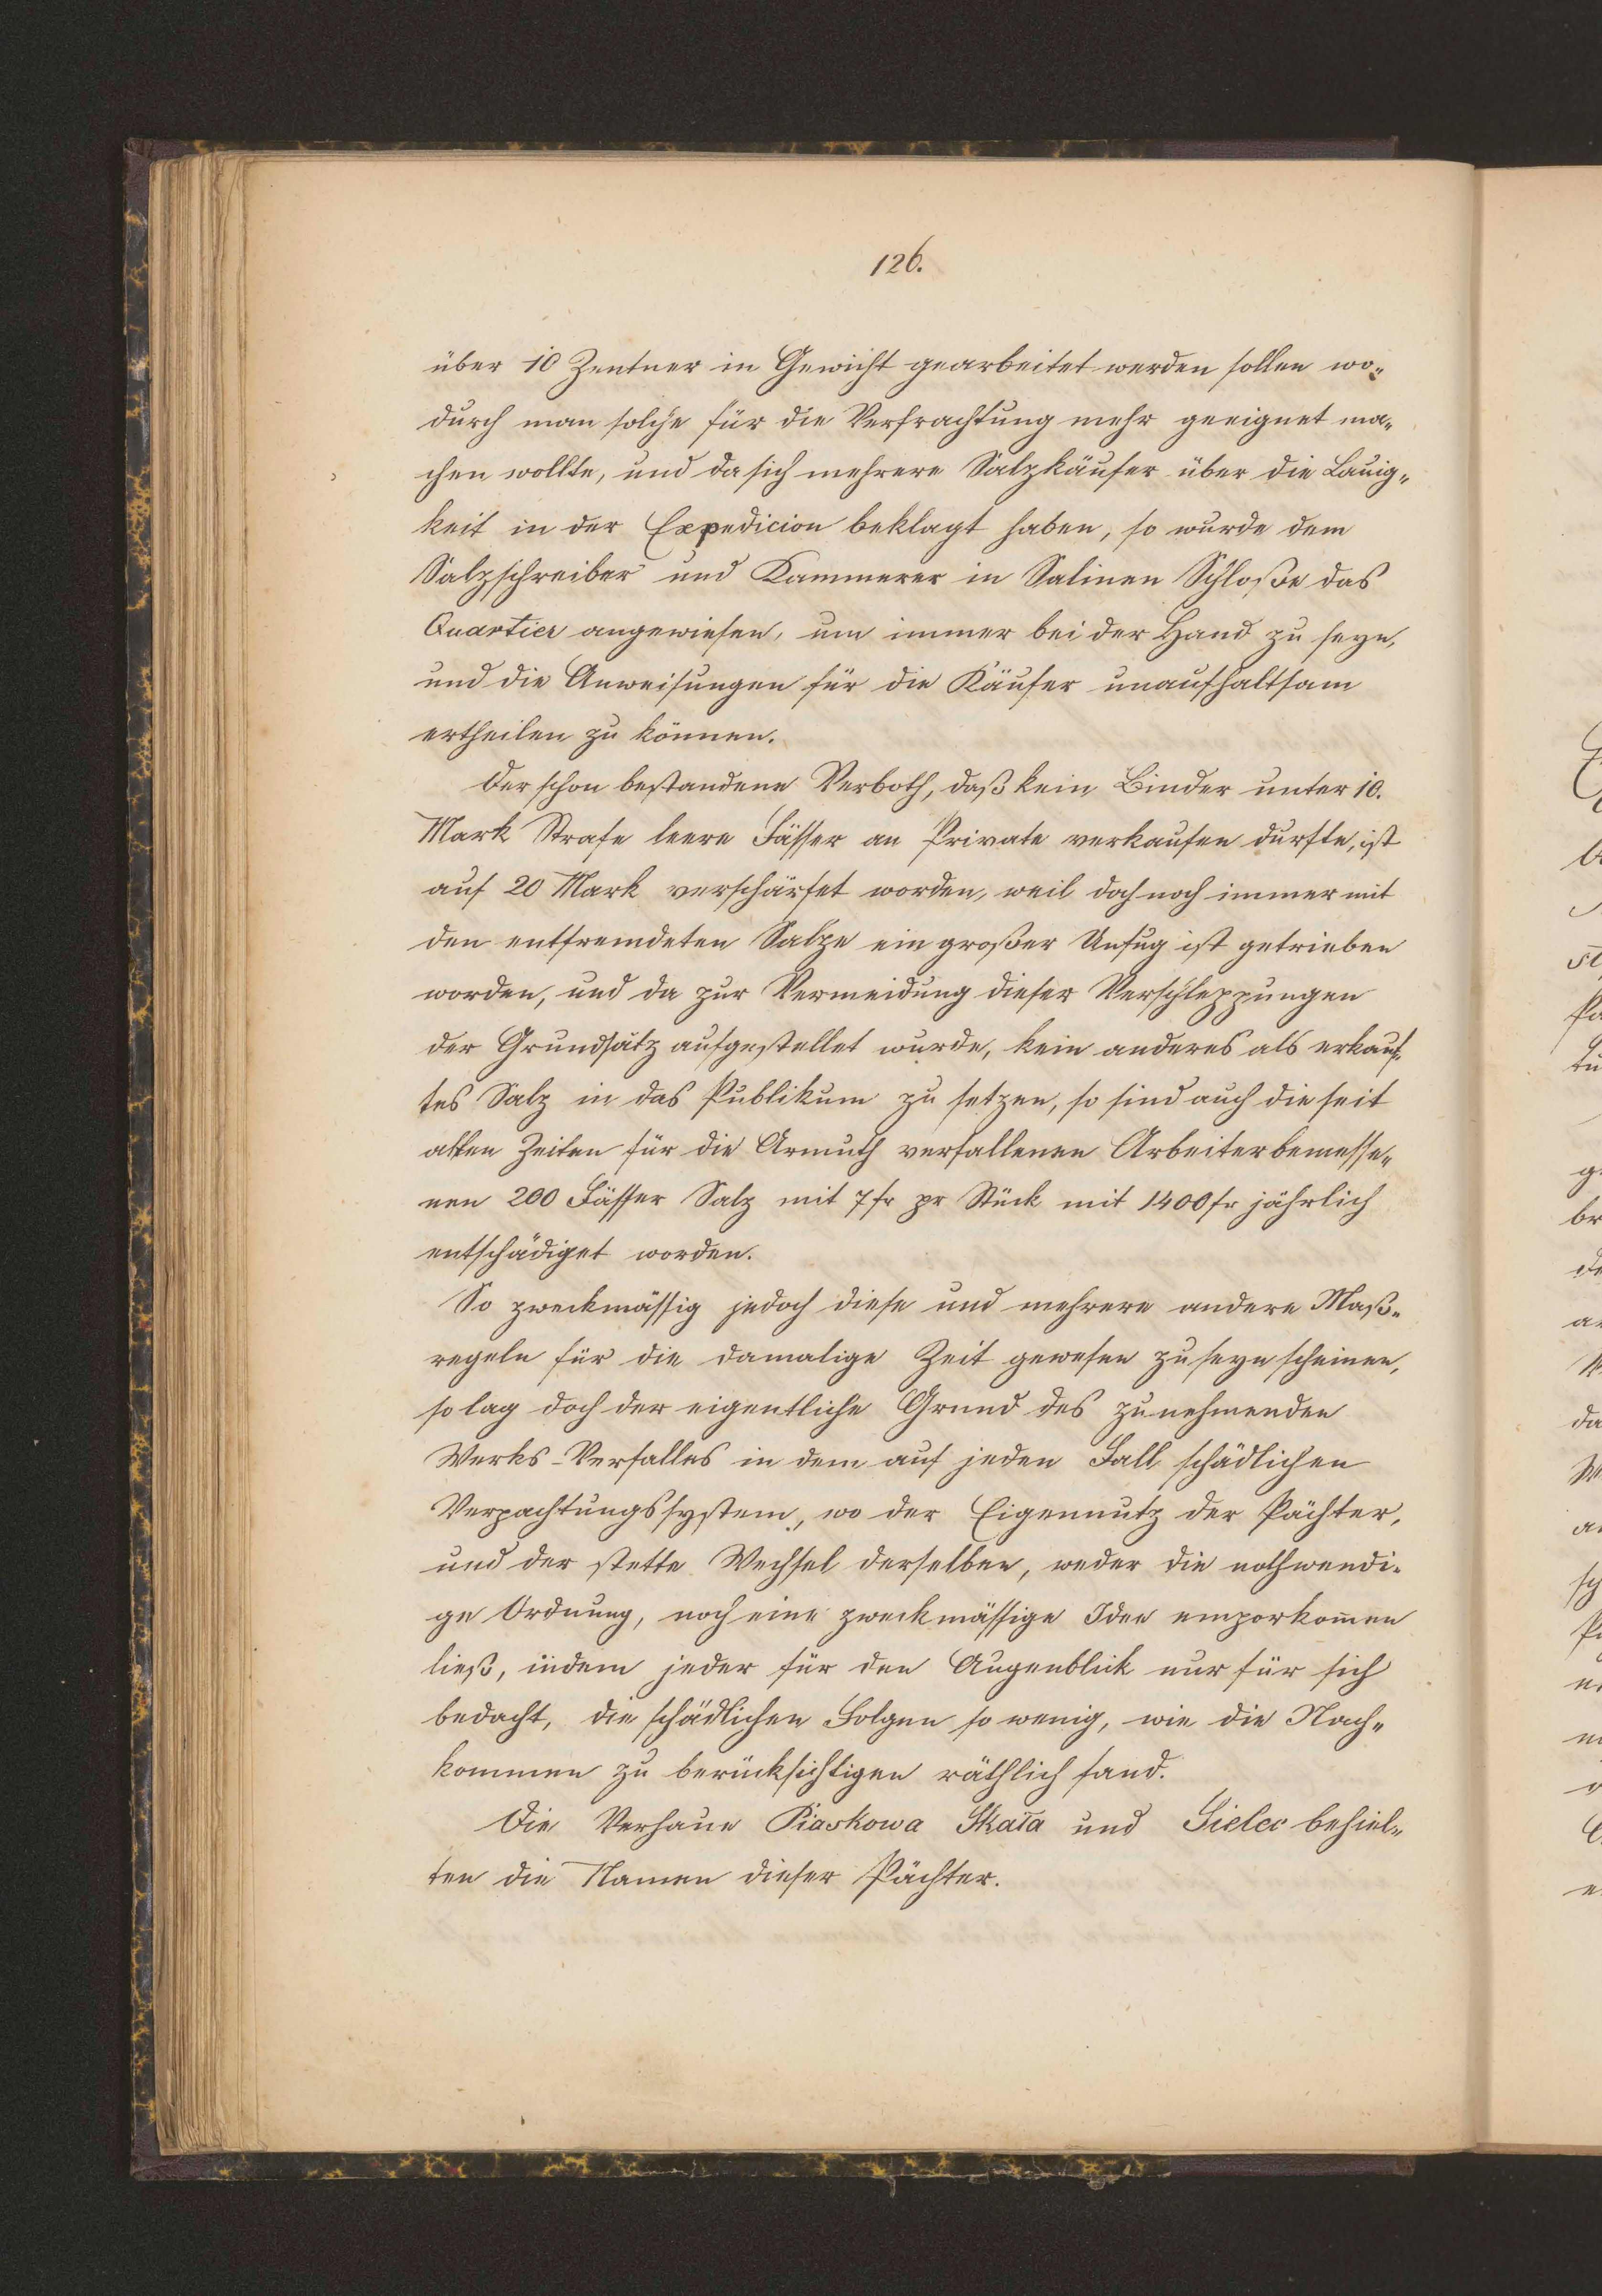 126.
über 10 Zentner in Gewicht gearbeitet werden sollen wo-
durch man solche für die Verfrachtung mehr geeignet ma-
chen wollte, und da sich mehrere Salzkäufer über die Lauig-
keit in der Expedicion beklagt haben, so wurde dem
Salzschreiber und Kammerer in Salinen Schloße das
Quartier angewiesen, um immer bei der Hand zu seyn,
und die Anweisungen für die Käufer unaufhaltsam
ertheilen zu können.
Der schon bestandene Verboth, daß kein Binder unter 10.
Mark Strafe leere Fässer an Private verkaufen durfte, ist
auf 20 Mark verschärfet worden, weil doch noch immer mit
den entfremdeten Salze ein großer Unfug ist getrieben
worden, und da zur Vermeidung dieser Verschleppungen
der Grundsatz aufgestellet wurde, kein anderes als erkauf-
tes Salz in das Publikum zu setzen, so sind auch die seit
alten Zeiten für die Armuth verfallenen Arbeiter bemesse-
nen 200 Fässer Salz mit 7 fr pr Stück mit 1400 fr jährlich
entschädiget worden.
So zweckmässig jedoch diese und mehrere andere Maß-
regeln für die damalige Zeit gewesen zu seyn scheinen,
so lag doch der eigentliche Grund des zunehmenden
Werks-Verfalles in dem auf jeden Fall schädlichen
Verpachtungssystem, wo der Eigennutz der Pächter,
und der stette Wechsel derselben, weder die nothwendi-
ge Ordnung, noch eine zweckmässige Idee emporkom̅en
ließ, indem jeder für den Augenblick nur für sich
bedacht, die schädlichen Folgen so wenig, wie die Nach-
kommen zu berücksichtigen räthlich fand.
Die Verhaue Piaskowa Skała und Sielec behiel-
ten die Namen dieser Pächter.